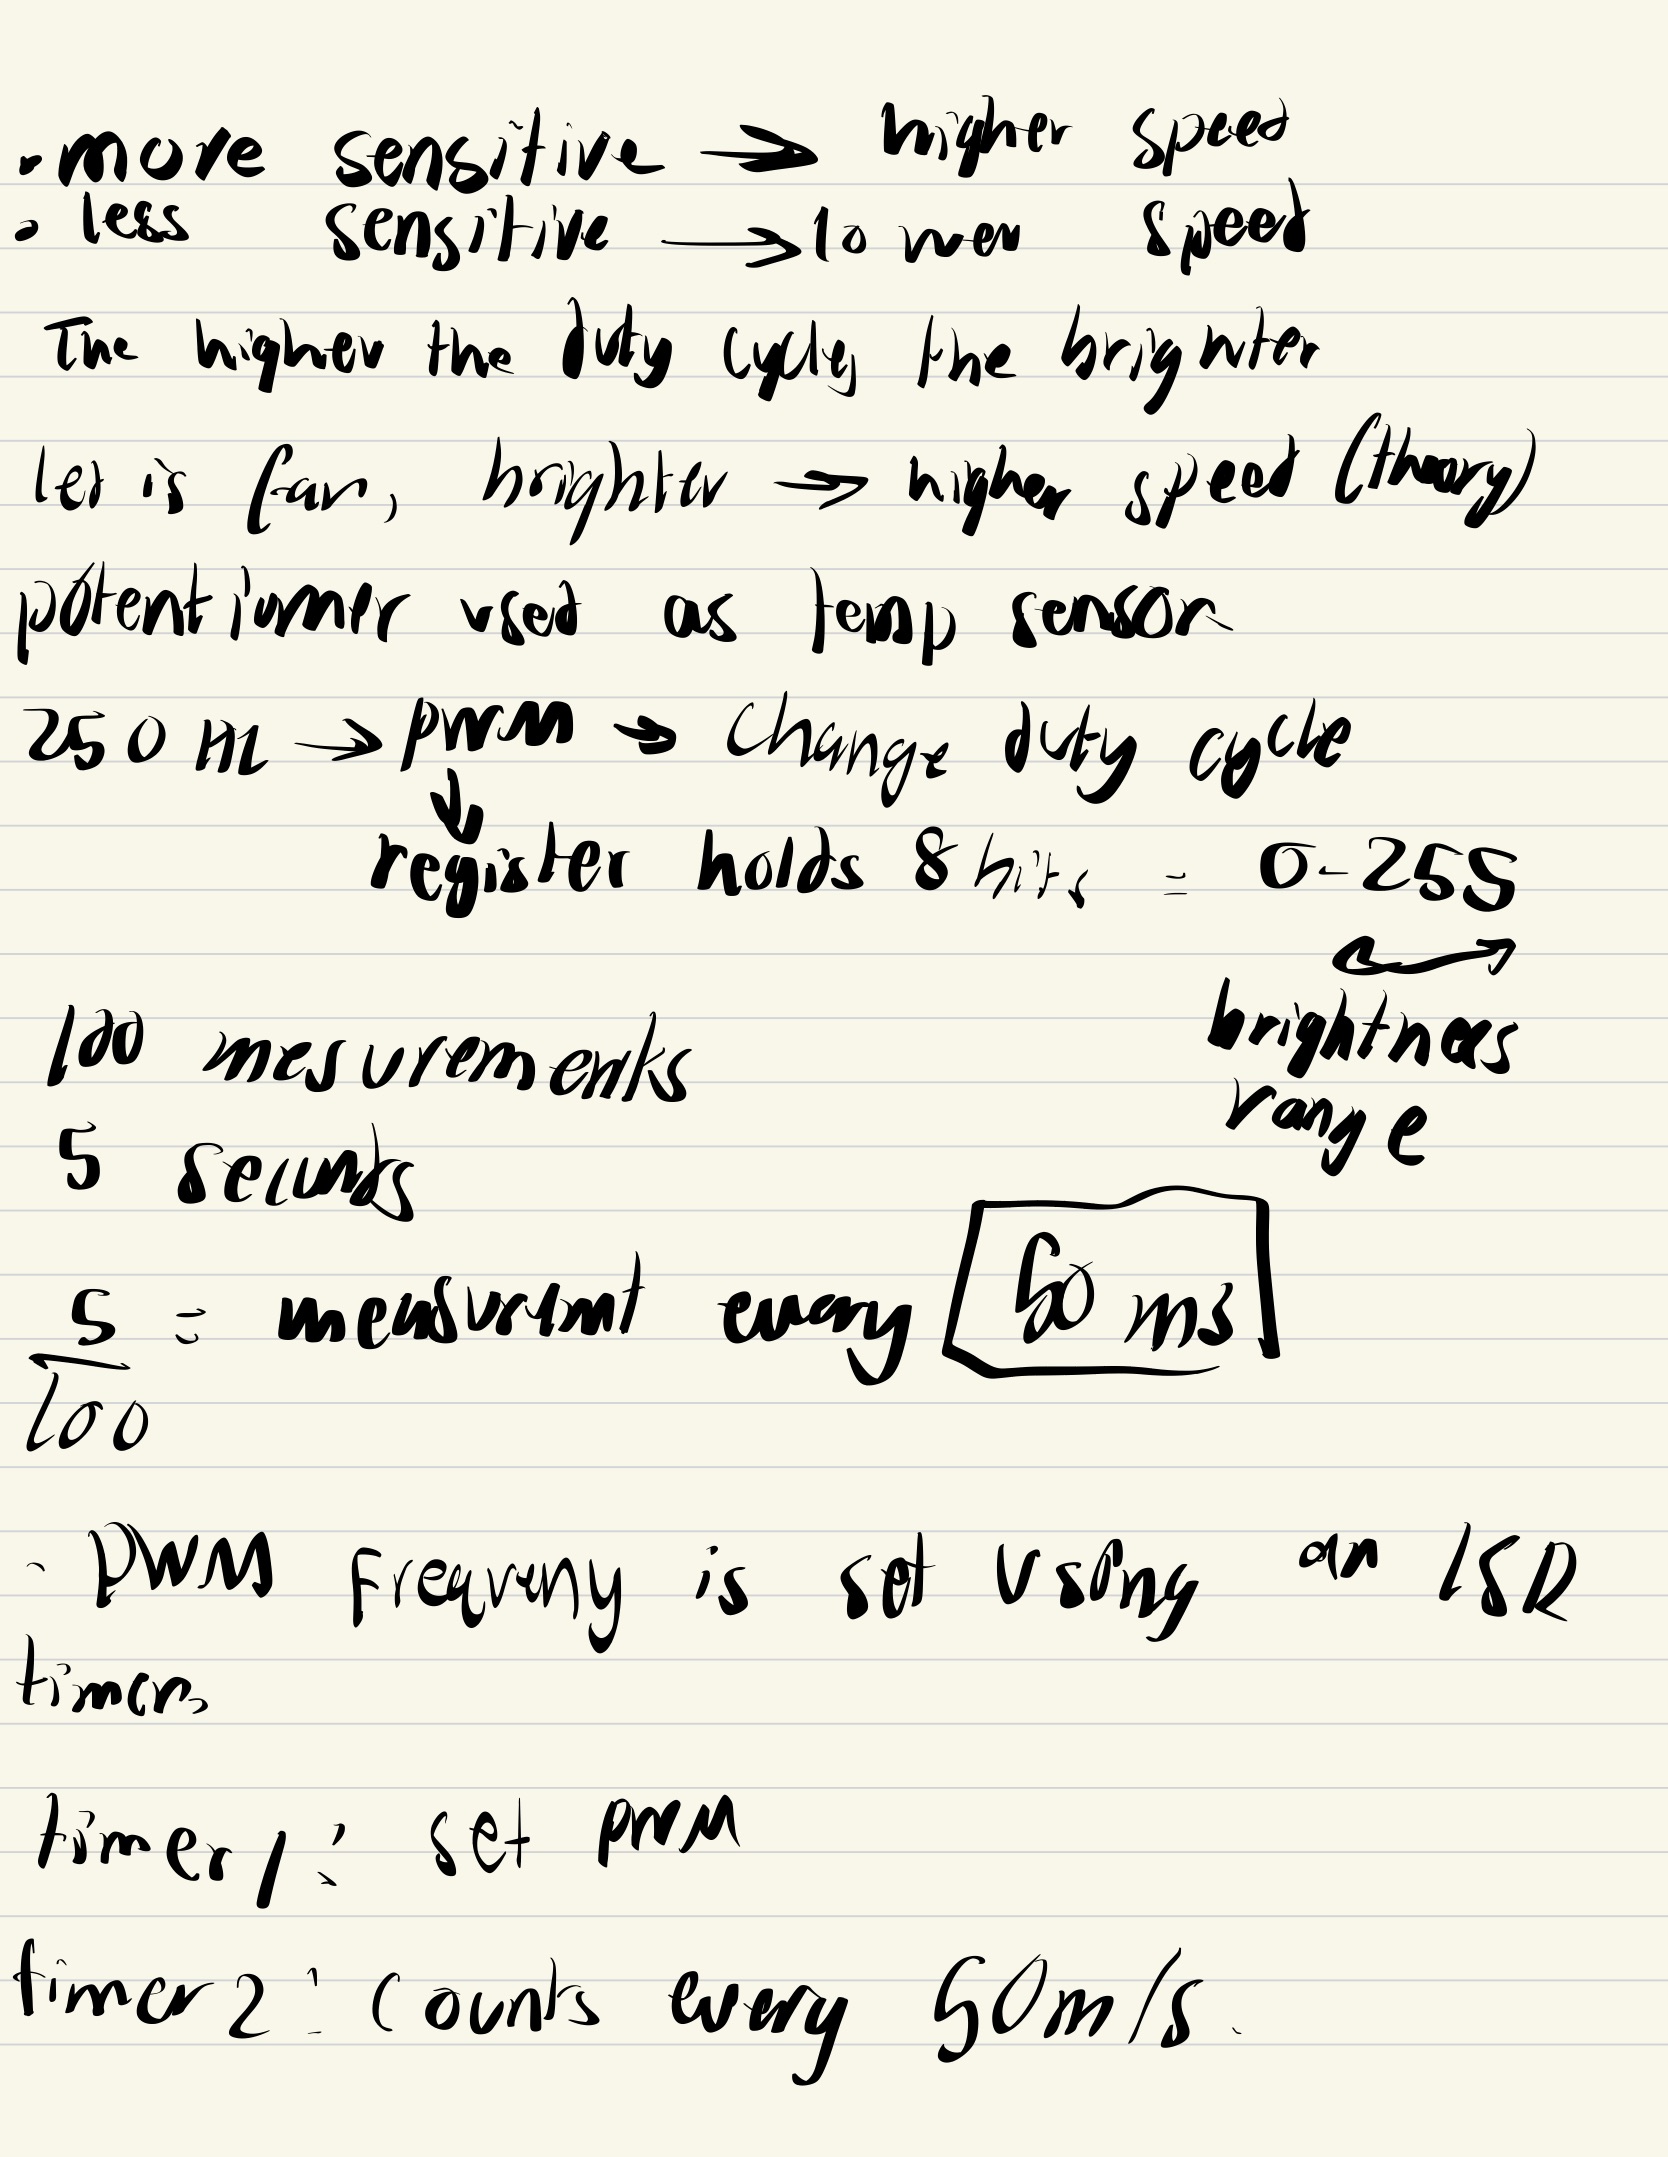 • more sensitive → higher speed
• less sensitive → lower speed
The higher the duty cycle, the brighter
led is fan, brighter → higher speed (theory)
potentiomer used as temp sensor
250 Hz → PWM → Change duty cycle
↓
register holds 8 bits = 0-255
brightness
range
100 mesurements
5 seconds
5/100 = measuremnt every 50 ms
· PWM Frequeny is set using an ISR
timer,
timer 1: set PWM
timer 2: Counts every 50m/s.